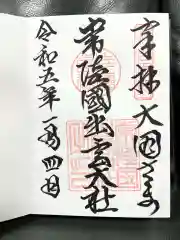 奉拝 大国さま
常陸國出雲大社
令和五年一月四日